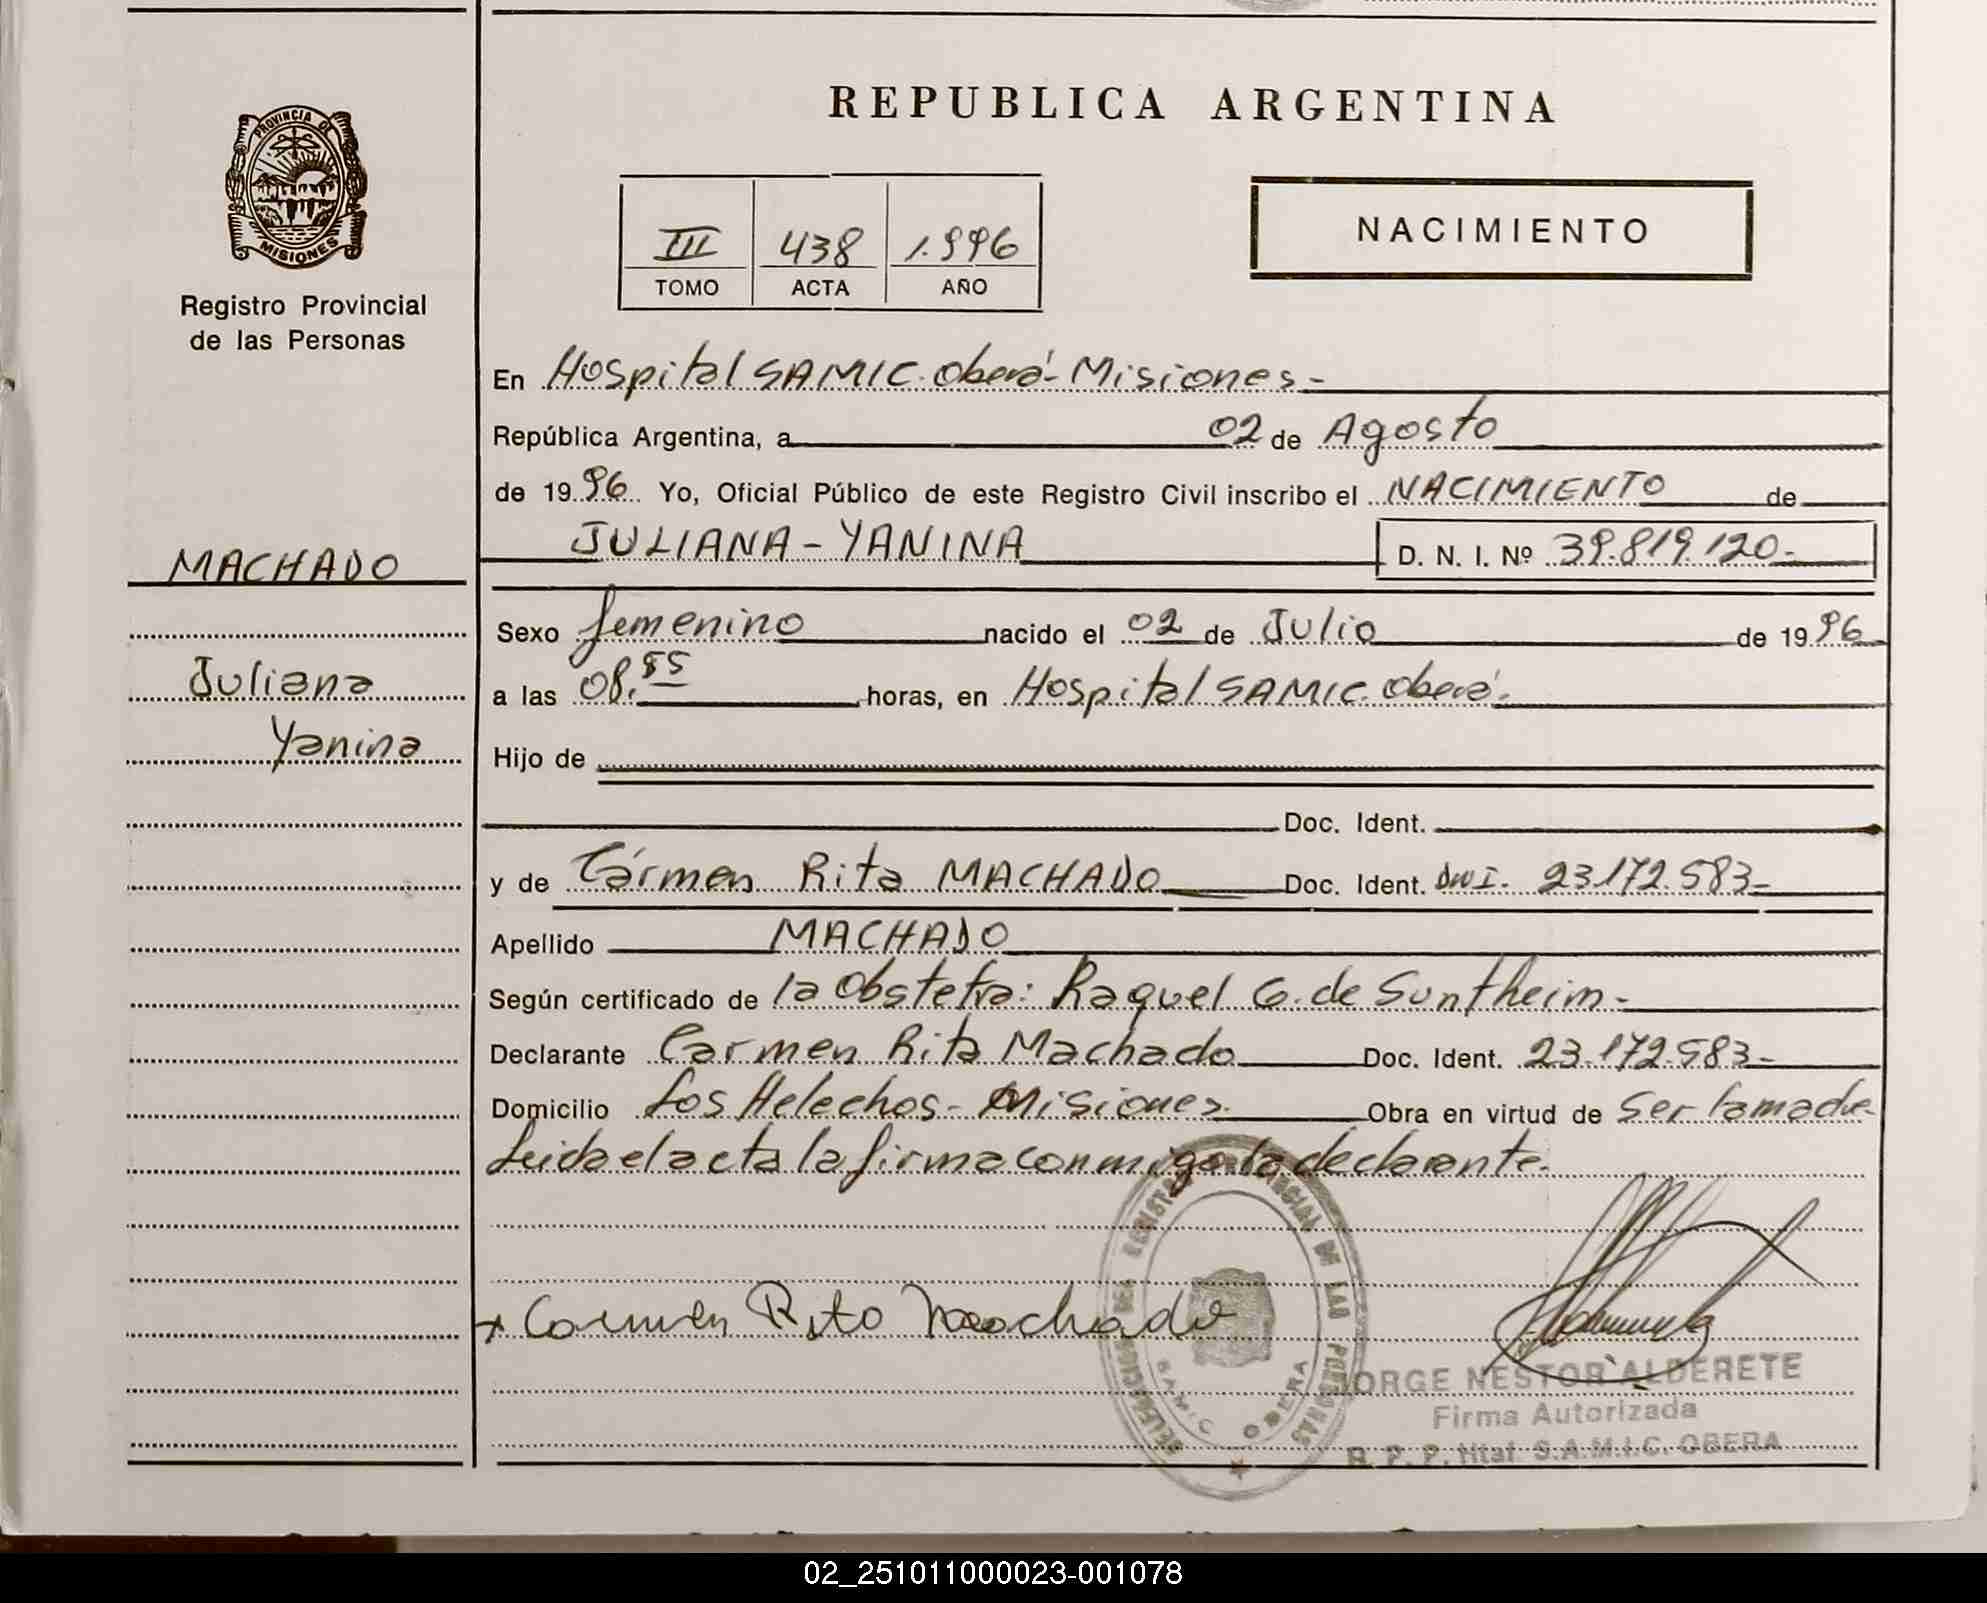 REPUBLICA ARGENTINA
PROVINCIA DE
MISIONES
Registro Provincial
de las Personas
III 438 1.996
TOMO ACTA AÑO
NACIMIENTO
En Hospital SAMIC. Oberá - Misiones -
República Argentina, a 02 de Agosto
de 1996 Yo, Oficial Público de este Registro Civil inscribo el NACIMIENTO de
MACHADO
JULIANA - YANINA D. N. I. Nº 39.819.120.-
Sexo femenino nacido el 02 de Julio de 1996
Juliana
a las 08.55 horas, en Hospital SAMIC. Oberá.
Yanina
Hijo de
Doc. Ident.
y de Cármen Rita MACHADO Doc. Ident. DNI. 23.172.583-
Apellido MACHADO
Según certificado de la Obstetra: Raquel G. de Suntheim -
Declarante Carmen Rita Machado Doc. Ident. 23.172.583-
Domicilio Los Helechos - Misiones. Obra en virtud de Ser la madre
Leida el acta la firma conmigo la declarante.
x Carmen Rita Machado
DELEGACION DEL REGISTRO PROVINCIAL DE LAS PERSONAS
SAMIC OBERA
JORGE NESTOR ALDERETE
Firma Autorizada
R. P. P. Htal. S.A.M.I.C. OBERA
02_251011000023-001078